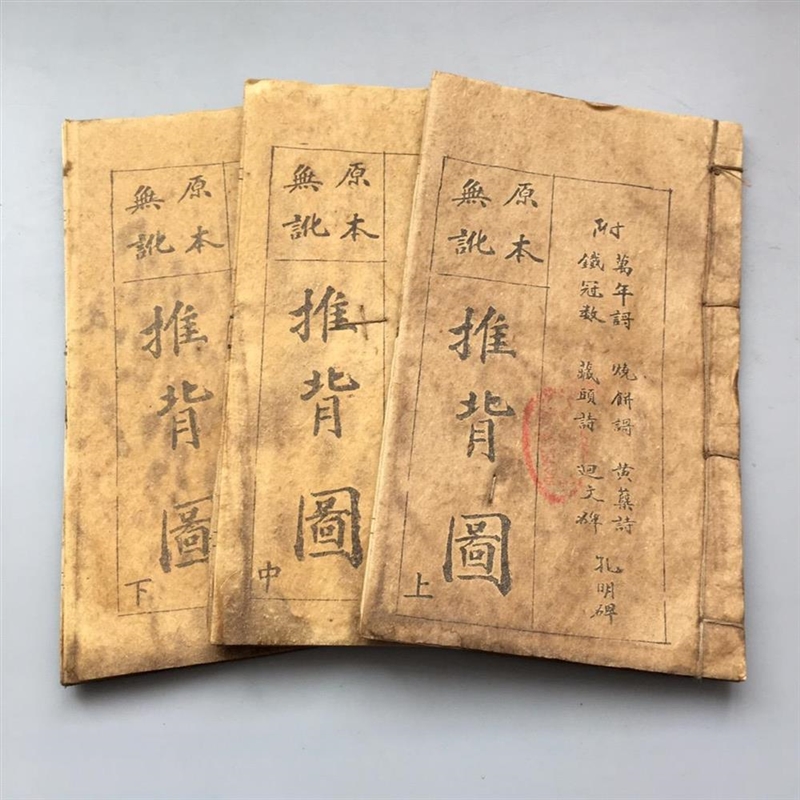 附
萬年謌 燒餅謌 黃蘗詩 孔明碑
鐵冠数 藏頭詩 迴文碑
原本
無訛
推背圖
上
原本
無訛
推背圖
中
原本
無訛
推背圖
下